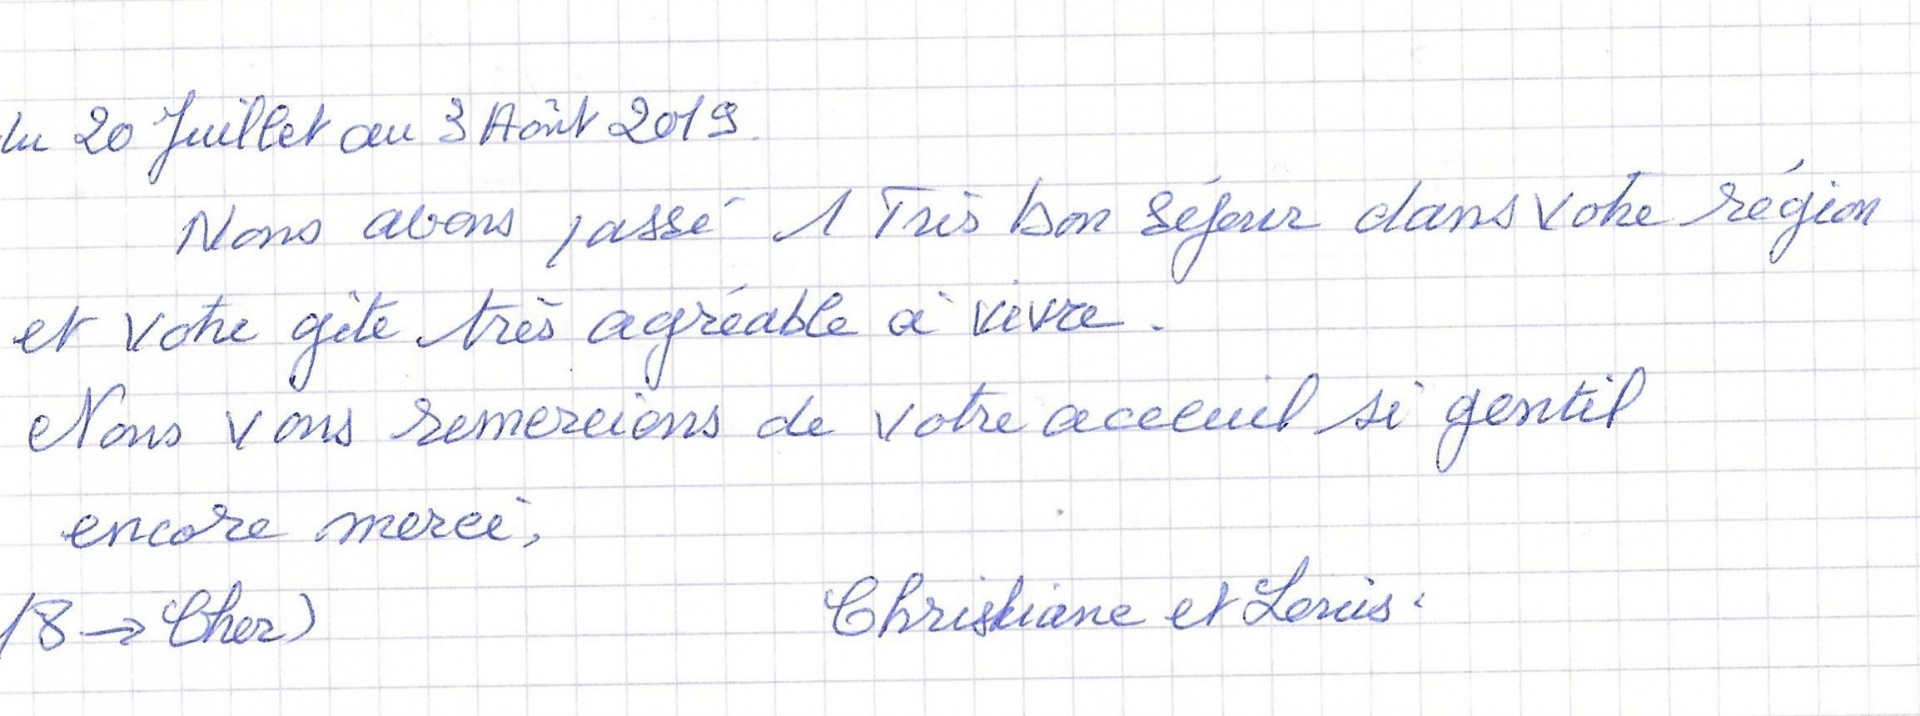 du 20 Juillet au 3 Août 2019.
Nous avons passé 1 Très bon séjour dans votre région
et votre gîte très agréable à vivre.
Nous vous remercions de votre acceuil si gentil
encore merci,
18 → Cher)
Christiane et Louis.